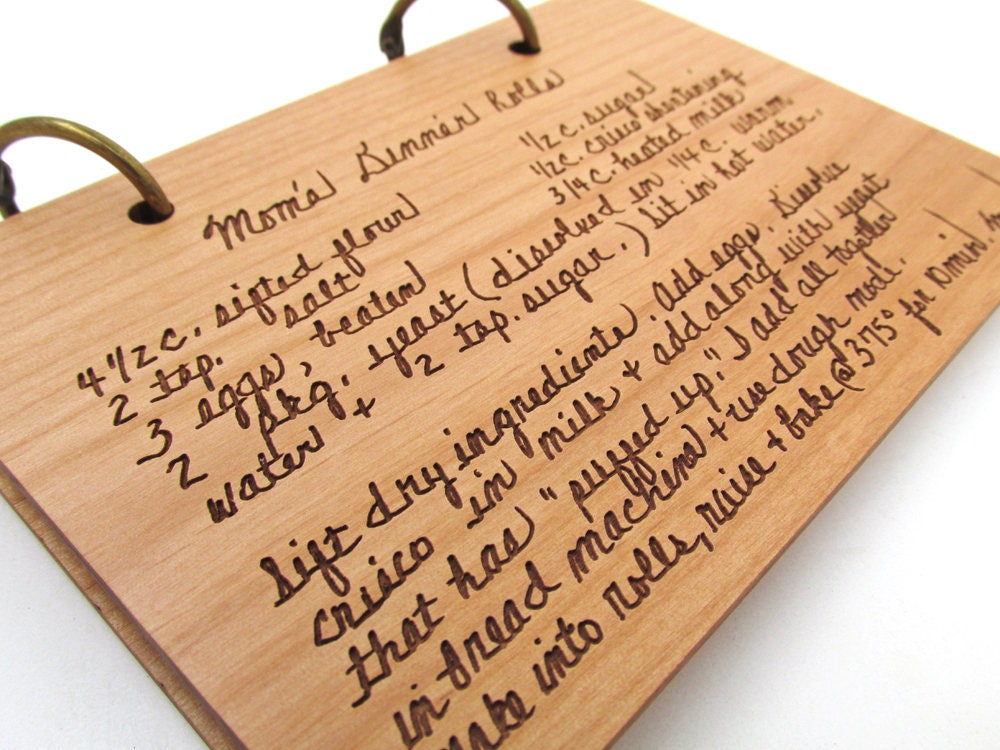 Mom's Dinner Rolls
4 1/2 c. sifted flour
1/2 c. sugar
2 tsp. salt
1/2 c. crisco shortening
3 eggs, beaten
3/4 c. heated milk
2 pkg. yeast (dissolved in 1/4 c. warm
water + 1/2 tsp. sugar.) Sit in hot water.
Sift dry ingredients. Add eggs. Dissolve
crisco in milk + add along with yeast
that has "puffed up." I add all together
in bread machine + use dough mode.
make into rolls, raise + bake @ 375° for 10 min.